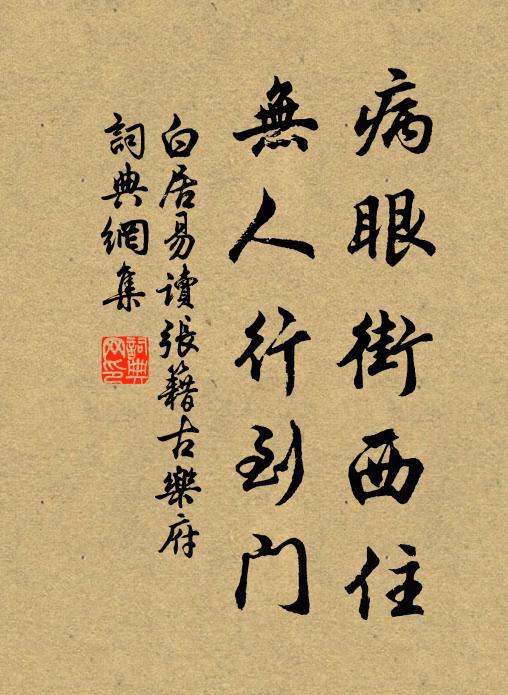 病眼街西住
無人行到門
白居易讀張籍古樂府
詞典網集
詞典
网印